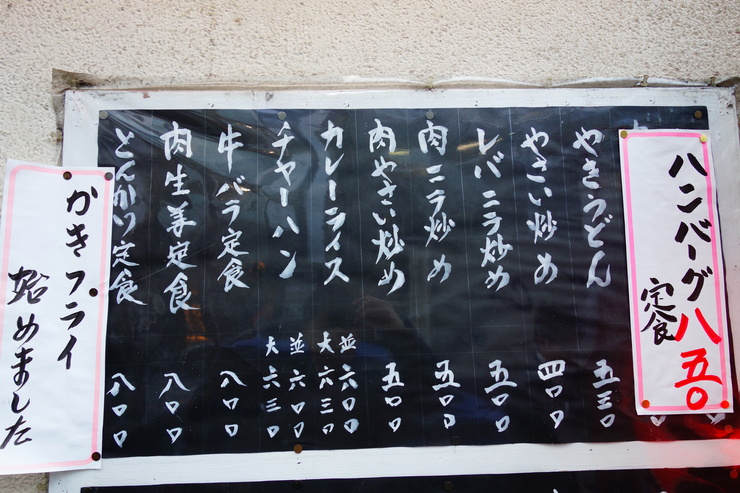 ハンバーグ定食 八五〇
やきうどん 五三〇
やさい炒め 四〇〇
レバニラ炒め 五〇〇
肉ニラ炒め 五〇〇
肉やさい炒め 五〇〇
カレーライス 並 六〇〇
大 六三〇
チャーハン 並 六〇〇
大 六三〇
牛バラ定食 八〇〇
肉生姜定食 八〇〇
とんかつ定食 八〇〇
かきフライ
始めました